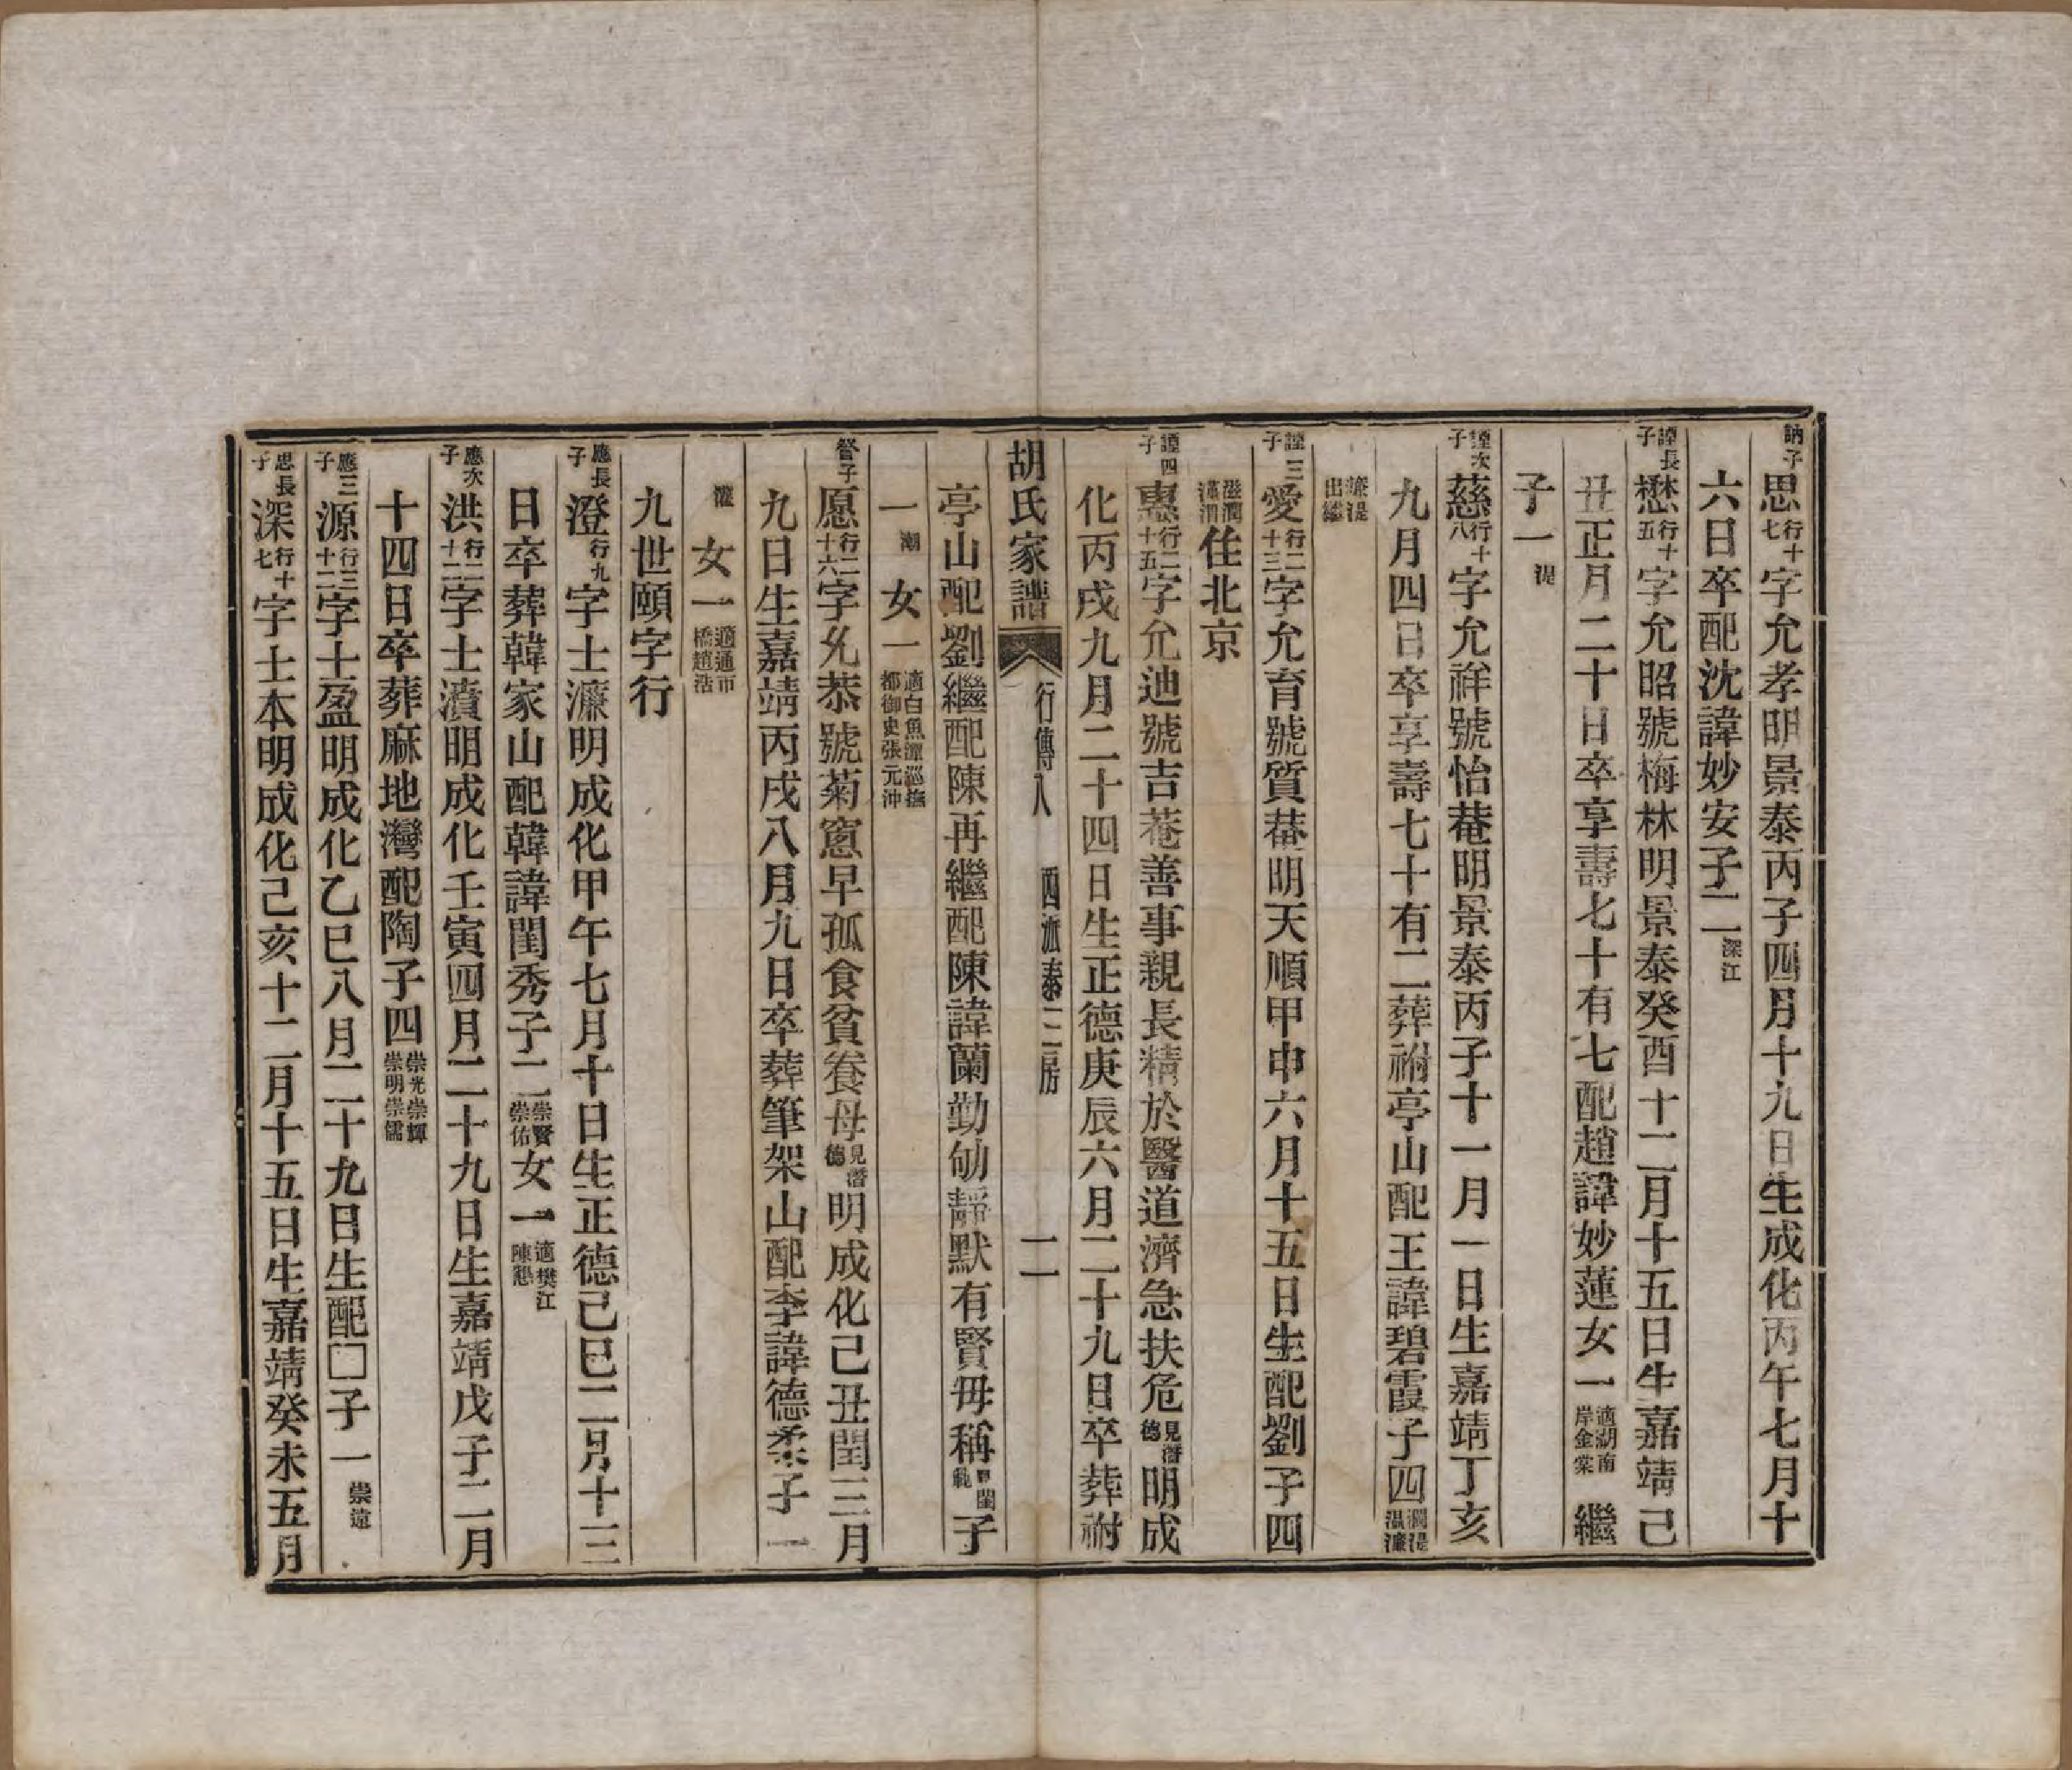 訥子思行十七字允孝明景泰丙子四月十九日生成化丙午七月十
六日卒配沈諱妙安子二深江
謹長子懋行十五字允昭號梅林明景泰癸酉十二月十五日生嘉靖己
丑正月二十日卒享壽七十有七配趙諱妙蓮女一適湖南岸金棠繼
子一湜
謹次子慈行十八字允祥號怡菴明景泰丙子十一月一日生嘉靖丁亥
九月四日卒享壽七十有二葬祔亭山配王諱碧霞子四澗湜泓濂
濂湜出繼
謹三子愛行二十三字允育號質菴明天順甲申六月十五日生配劉子四
滋潤瀟渭住北京
謹四子惠行二十五字允迪號吉菴善事親長精於醫道濟急扶危見潛德明成
化丙戌九月二十四日生正德庚辰六月二十九日卒葬祔
胡氏家譜 行傳八 四派泰三房 二
亭山配劉繼配陳再繼配陳諱蘭勤劬靜默有賢毋稱見閨範子
一潮女一適白魚潭巡撫都御史張元沖
管子愿行二十六字允恭號菊窻早孤食貧養母見潛德明成化己丑閏三月
九日生嘉靖丙戌八月九日卒葬筆架山配李諱德柔子一
灌女一適通市橋趙浩
九世頤字行
應長子澄行九字士濂明成化甲午七月十日生正德己巳二月十三
日卒葬韓家山配韓諱閨秀子二崇賢崇佑女一適樊江陳懇
應次子洪行二十二字士濆明成化壬寅四月二十九日生嘉靖戊子二月
十四日卒葬麻地灣配陶子四崇光崇輝崇明崇儒
應三子源行三十二字士盈明成化乙巳八月二十九日生配□子一崇遠
思長子深行十七字士本明成化己亥十二月十五日生嘉靖癸未五月